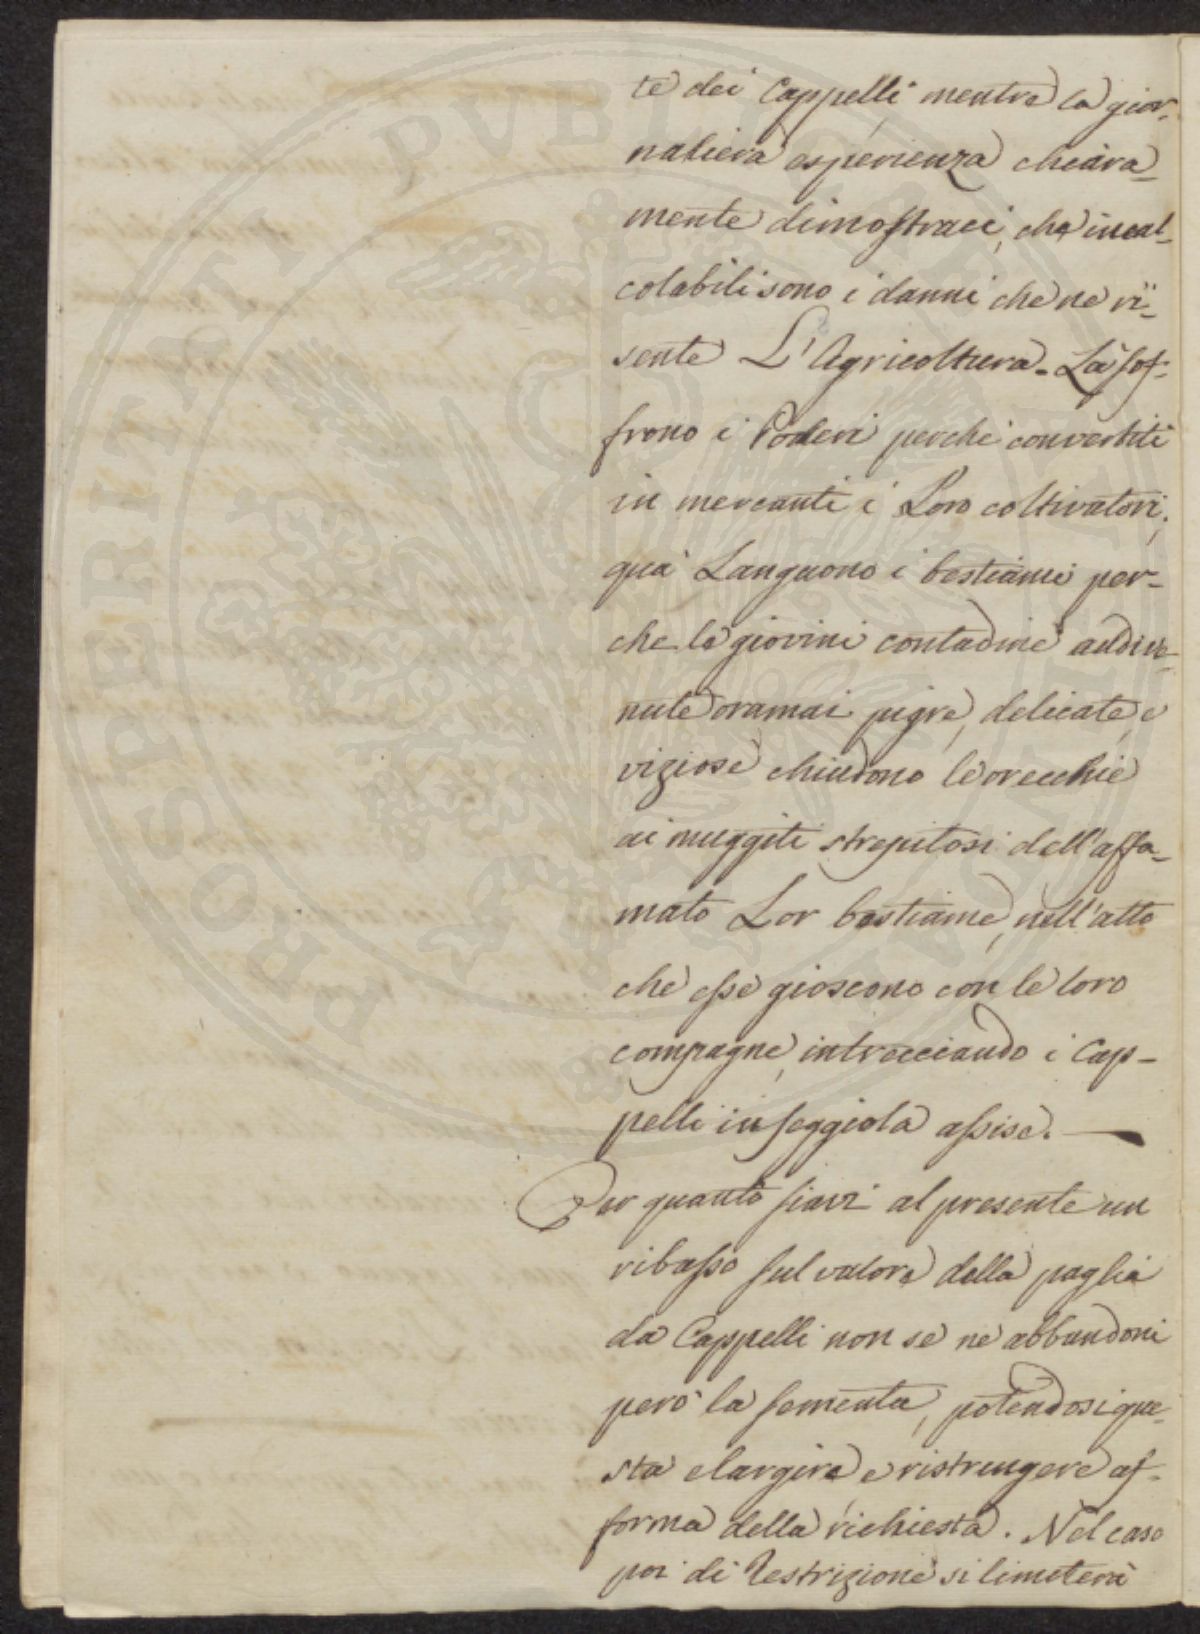 te dei Cappelli, mentre la gior-
naliera esperienza chiara-
mente dimostraci, che incal-
colabili sono i danni che ne ri-
sente L'Agricoltura. Là sof-
frono i Poderi perche convertiti
in mercanti i Loro coltivatori,
quà Languono i bestiami per-
che le giovini contadine addive-
nute oramai pigre, delicate, e
viziose chiudono le orecchie
ai muggiti strepitosi dell'affa-
mato Lor bestiame, nell'atto
che esse gioscono con le loro
compagne, intrecciando i Cap-
pelli in seggiola assise.
Per quanto siavi al presente un
ribasso sul valore della paglia
da Cappelli non se ne abbandoni
però la sementa, potendosi que-
sta elargire e ristringere af-
forma della richiesta. Nel caso
poi di Restrizione si limiterà
PROSPERITATI PVBLICAE